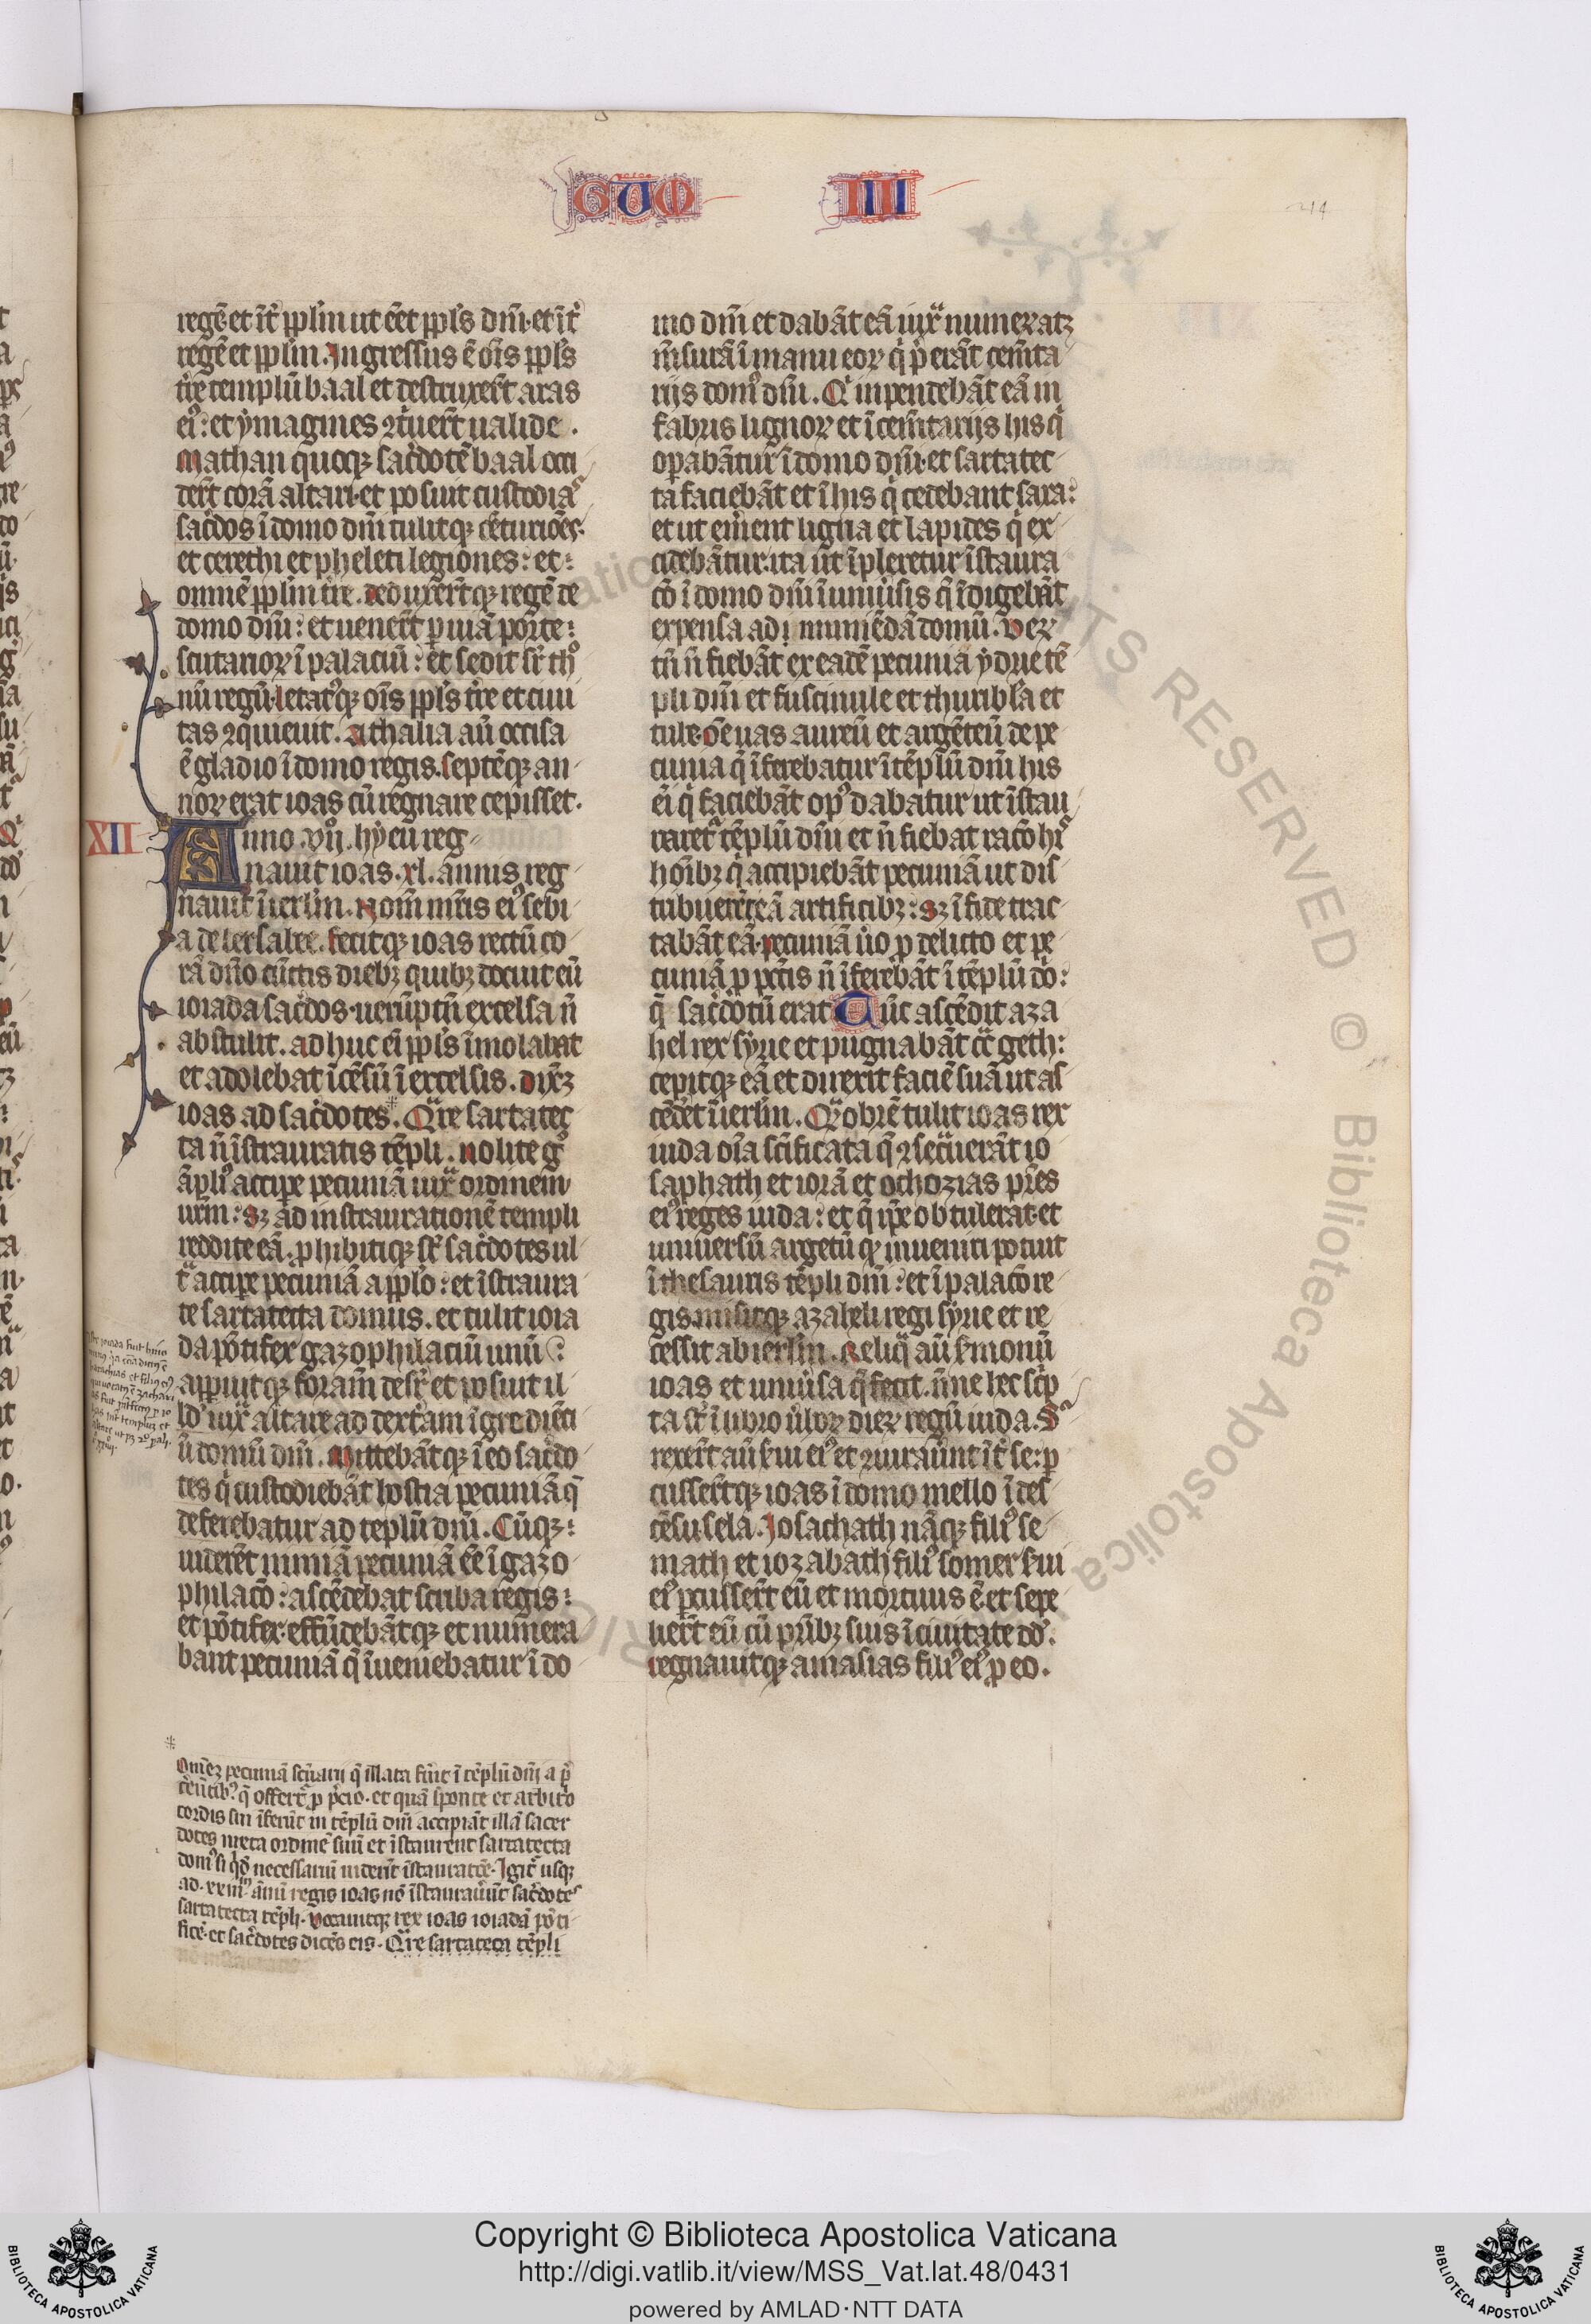 GUM IIII
214
regē et īt᷑ ppl̄m ut eēt ppl̄s dn̄i. et īt᷑
regē et ppl̄m. Ingressus ē oīs ppl̄s
tr̄e templū baal et destruxer̄t aras
eiꝰ: et ymagines ꝯtuer̄t ualide.
Mathan quoqꝫ sac̄dotē baal occi
der̄t corā altari. et posuit custodias
sac̄dos ī domo dn̄i tulitqꝫ cēturiōes.
et cerethi et pheleti legiones: et:
omnē ppl̄m tr̄e. deduxer̄tqꝫ regē de
domo dn̄i: et uener̄t ꝑ uiā porte:
scutarioꝝ ī palaciū: et sedit sr̄ thꝰ
nū regū. letatꝰqꝫ oīs ppl̄s tr̄e et ciui
tas ꝯquieuit. Athalia aū occisa
ē gladio ī domo regis. septēqꝫ an
noꝝ erat ioas cū regnare cepisset.
XII
Anno .vij. hyeu reg
nauit ioas. xl. annis reg
nauit ī ierl̄m. Nom̄ mr̄is eiꝰ sebi
a de bersabee. fecitqꝫ ioas rectū co
rā dn̄o cūctis diebꝫ quibꝫ docuit eū
ioiada sac̄dos. uerūptn̄ excelsa n̄
abstulit. adhuc ei ppl̄s īmolabat
et adolebat īcēsū ī excelsis. Dixꝫ
ioas ad sac̄dotes. Qr̄e sartatec
ta n̄ īstrauratis tēpli. Nolite gꝰ
āpliꝰ accipe pecuniā iuxͣ ordinem
ur̄m: sꝫ ad instraurationē templi
reddite eā. ꝓhibitiqꝫ sr̄ sac̄dotes ul
tͣ accipe pecuniā a pplo: et īstraura
te sartatecta domus. et tulit ioia
da pōtifex gazophilaciū unū:
apꝑuitqꝫ foramē desr̄ et posuit il
ldꝰ iuxͣ altare ad dextram īgredieti
ū domū dn̄i. Mittebātqꝫ ī eo sac̄do
tes q̇ custodiebāt hostia pecuniā q̄
deferebatur ad tēplū dn̄i. Cūqꝫ:
uiderēt nimiā pecuniā eē ī gazo
philaco: ascēdebat scriba regis:
et pōtifex. effūdebātqꝫ et numera
bant pecuniā q̄ īueniebatur ī do
mo dn̄i et dabāt eā iuxͣ numeratꝫ
m̄surā ī manu eoꝝ q̇ p̄erāt cem̄ta
rijs domꝰ dn̄i. Q̇ inpendebāt eā in
fabris lignoꝝ et ī cem̄tarijs his q̇
opabātur ī domo dn̄i. et sartatec
ta faciebāt et ī his q̇ cedebant saxa:
et ut em̄ent ligna et lapides q̇ ex
cidebātur. ita ūt īpleretur īstaura
cō ī domo dn̄i ī uniūsis q̄ īdigebāt
expensa ad muniēdā domū. Veꝝ
tn̄ n̄ fiebāt ex eadē pecunia ydrie tē
pli dn̄i et fuscinule et thuribl̄a et
tube. oē uas aureū et argēteū de pe
cunia q̄ īferebatur ī tēplū dn̄i his
ei q̇ faciebāt opꝰ dabatur ut īstau
raretͬ tēplū dn̄i et n̄ fiebat raco his
hoībꝫ q̇ accipiebāt pecuniā ut dis
tribuerēt eā artificibꝫ: sꝫ ī fide trac
tabāt eā. pecuniā ūo ꝓ delicto et pe
cuniā ꝓ pctīs n̄ īferebāt ī tēplū do:
q̄ sac̄dotū erat Tūc ascēdit aza
hel rex syrie et pugnabāt cͣ geth:
cepitqꝫ eā et direxit faciē suā ut as
cēdet ī ierl̄m. Qͣobrē tulit ioas rex
iuda oīa scīficata q̄ ꝯsecͣuerāt io
saphath et iorā et ochozias pr̄es
eiꝰ reges iuda: et q̄ ip̄e obtulerat. et
uniuersū argetū qꝫ inueniri potuit
ī thesauris tēpli dn̄i: et ī palaco re
gis. misitqꝫ azaheli regi syrie et re
cessit ab ierl̄m. Reliqͣ aū s̄monū
ioas et uniūsa q̄ fecit. n̄ne hec sc̄p
ta sr̄ ī libro ūboꝝ dieꝝ regū iuda. Sͬ
rexer̄t aū s̄ui eiꝰ et ꝯiurauer̄nt īt᷑ se: ꝑ
cusser̄tqꝫ ioas ī domo mello ī des
cēsu sela. Josachath nāqꝫ filiꝰ se
math et iozabath filiꝰ somer s̄ui
eiꝰ ꝑcusser̄t eū et mortuus ē et sepe
lier̄t eū cū pr̄ibꝫ suis ī ciuitate dd̄.
regnauitqꝫ amasias filiꝰ eiꝰ ꝓ eo.
Om̄eꝫ pecuniā sc̄uarii q̄ illata fūit ī tēplū dn̄i a p̄
tēūtibꝰ. q̄ offert᷑ ꝓ p̄cio. et quā sponte et arbit᷑o
cordis sui īferūt in tēplū dn̄i accipiāt illā sacer
dotes iuxta ordinē suū et īstaurent sartatecta
domꝰ si qd̄ necessariū uiderīt īstauratōe. Igit᷑ usqꝫ
ad .xxiiiꝰ. ānū regis ioas nō īstaurauer̄t sac̄dotes
sartatecta tēpli. Vocauitqꝫ rex ioas ioiadā pōti
ficē. et sac̄dotes dicēs eis. Qr̄e sartatecta tēpli
Copyright © Biblioteca Apostolica Vaticana
http://digi.vatlib.it/view/MSS_Vat.lat.48/0431
powered by AMLAD·NTT DATA
BIBLIOTECA APOSTOLICA VATICANA
BIBLIOTECA APOSTOLICA VATICANA